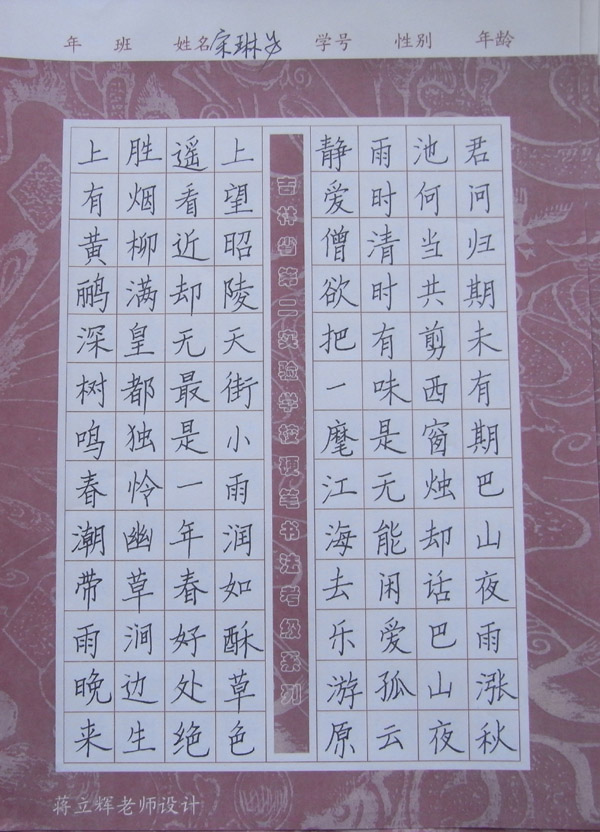 年 班 姓名宋琳 学号 性别 年龄
君问归期未有期巴山夜雨涨秋
池何当共剪西窗烛却话巴山夜
雨时清时有味是无能闲爱孤云
静爱僧欲把一麾江海去乐游原
吉林省第二实验学校硬笔书法考级系列
上望昭陵天街小雨润如酥草色
遥看近却无最是一年春好处绝
胜烟柳满皇都独怜幽草涧边生
上有黄鹂深树鸣春潮带雨晚来
蒋立辉老师设计